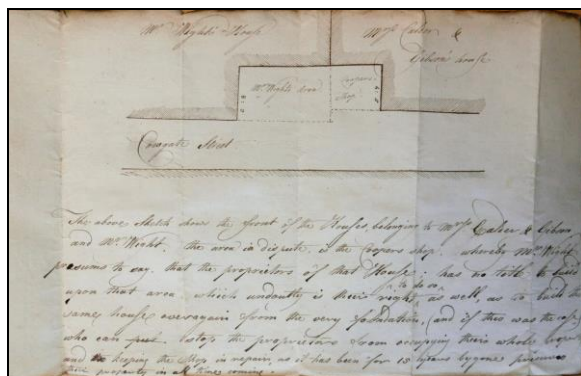 Mr Wight's House
Mess Calder &
Gibson' house
Mr Wights area
Coopers
Shop
Cowgate Street
The above Sketch shows the front of the Houses, belonging to Mess Calder & Gibson
and Mr Wight. the area in dispute, is the Coopers shop. whereby Mr Wight
presumes to say. that the proprietors of that House; has no title to build
upon that area. which undoubtly is their right to do so, as well, as to build the
same house overagain from the very foundation, (and if this was the case,
who can to stop the proprietors from occupying their whole
and keeping the Shop in repair, as it has been for 18 years bygone
their property in all times coming.